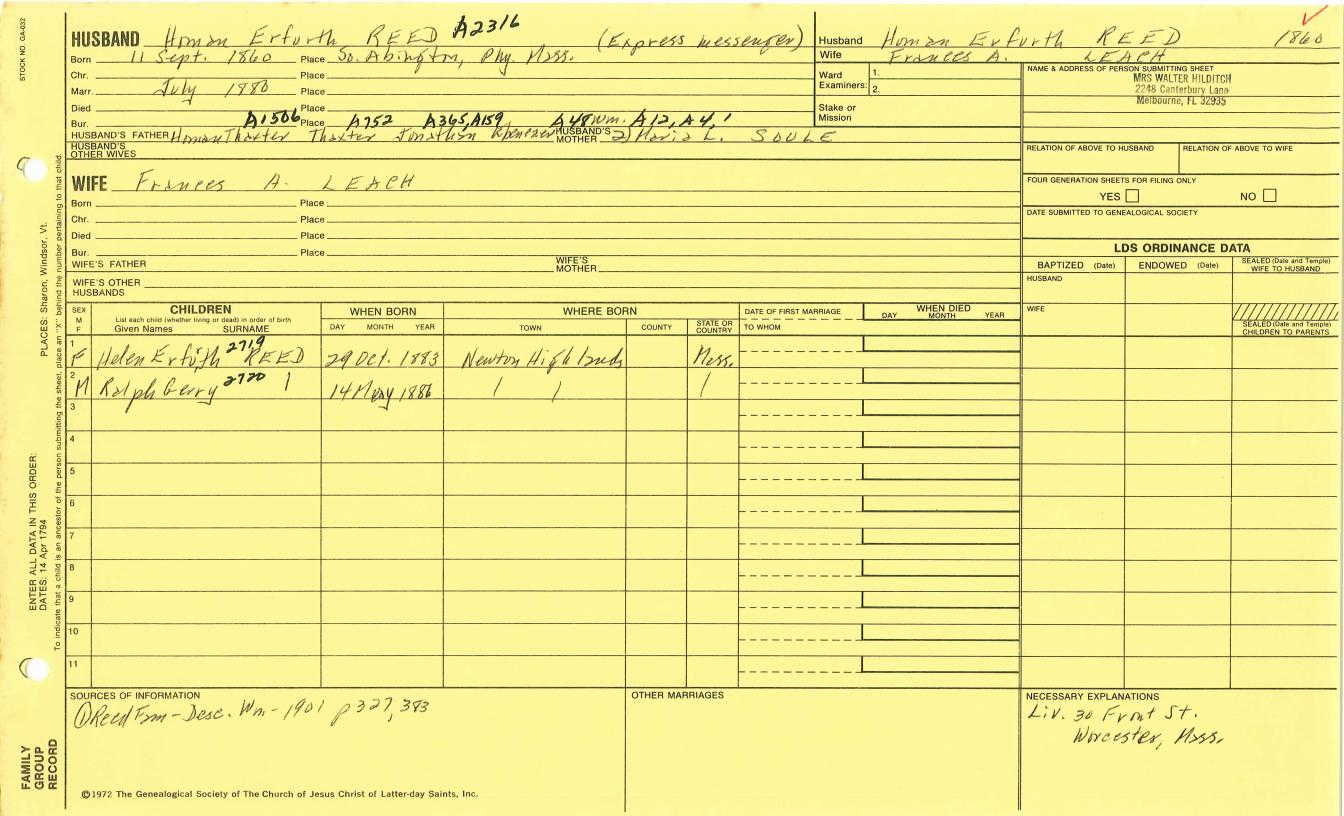 STOCK NO. GA-032
HUSBAND Homan Erfurth REED A2316 (Express messenger)
Born 11 Sept. 1860 Place So. Abington, Ply. Mass.
Chr. Place
Marr. July 1880 Place
Died Place
Bur. A1506 Place A752 A365, A159 A48 Wm. A12, A4, 1
HUSBAND'S FATHER Homan Thaxter Thaxter Jonathan Ebenezer HUSBAND'S MOTHER 2) Maria L. SOULE
HUSBAND'S OTHER WIVES
WIFE Frances A. LEACH
Born Place
Chr. Place
Died Place
Bur. Place
WIFE'S FATHER WIFE'S MOTHER
WIFE'S OTHER HUSBANDS
Husband Homan Erfurth REED 1860
Wife Frances A. LEACH
Ward Examiners: 1. 2.
Stake or Mission
NAME & ADDRESS OF PERSON SUBMITTING SHEET
MRS WALTER HILDITCH
2248 Canterbury Lane
Melbourne, FL 32935
RELATION OF ABOVE TO HUSBAND RELATION OF ABOVE TO WIFE
FOUR GENERATION SHEETS FOR FILING ONLY
YES NO
DATE SUBMITTED TO GENEALOGICAL SOCIETY
LDS ORDINANCE DATA
BAPTIZED (Date) ENDOWED (Date) SEALED (Date and Temple) WIFE TO HUSBAND
HUSBAND
WIFE
SEALED (Date and Temple) CHILDREN TO PARENTS
SEX M F
CHILDREN
List each child (whether living or dead) in order of birth
Given Names SURNAME
WHEN BORN
DAY MONTH YEAR
WHERE BORN
TOWN COUNTY STATE OR COUNTRY
DATE OF FIRST MARRIAGE
TO WHOM
WHEN DIED
DAY MONTH YEAR
1 F Helen Erfurth 2719 REED 29 Oct. 1883 Newton Highlands Mass.
2 M Ralph Gerry 2720 " 14 May 1886 " " "
3
4
5
6
7
8
9
10
11
SOURCES OF INFORMATION
① Reed Fam - Desc. Wm - 1901 p 327, 383
OTHER MARRIAGES
NECESSARY EXPLANATIONS
Liv. 30 Front St.
Worcester, Mass.
©1972 The Genealogical Society of The Church of Jesus Christ of Latter-day Saints, Inc.
FAMILY GROUP RECORD
ENTER ALL DATA IN THIS ORDER:
DATES: 14 Apr 1794
PLACES: Sharon, Windsor, Vt.
To indicate that a child is an ancestor of the person submitting the sheet, place an "X" behind the number pertaining to that child.